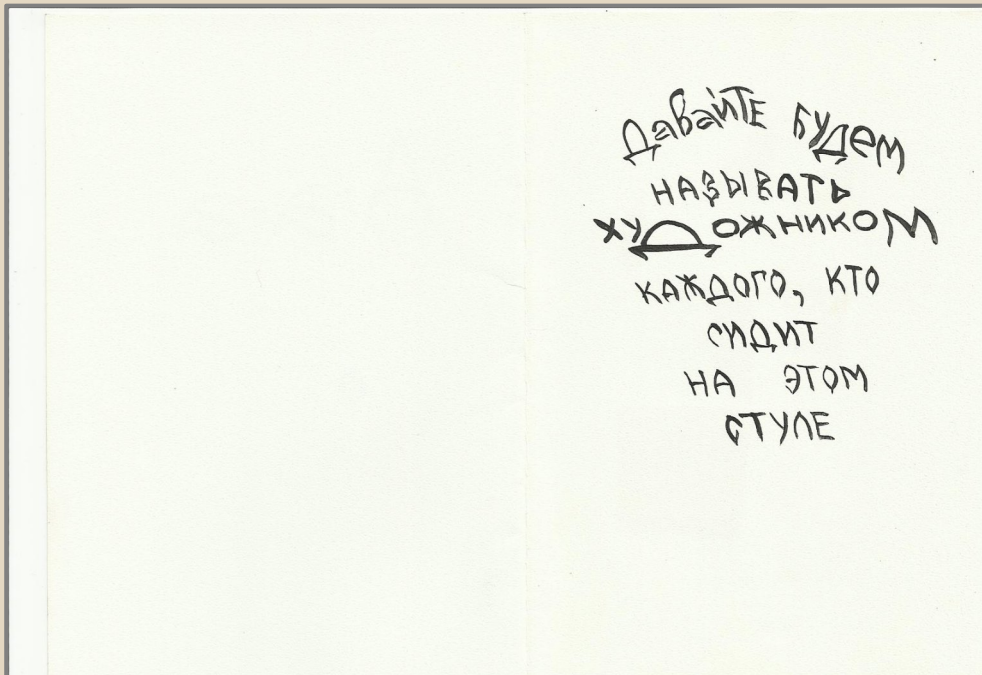 Давайте будем
НАЗЫВАТЬ
ХУДОЖНИКОМ
КАЖДОГО, КТО
СИДИТ
НА ЭТОМ
СТУЛЕ